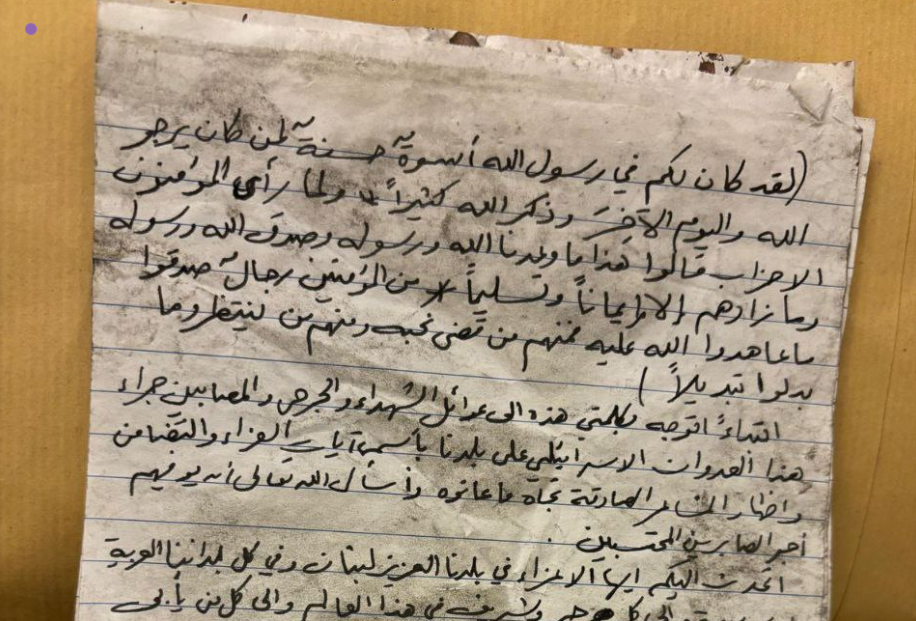 (لقد كان لكم في رسول الله أسوةٌ حسنةٌ لمن كان يرجو
الله واليوم الآخرَ وذكر الله كثيراً * ولما رأى المؤمنون
الاحزاب قالوا هذا ما وعدنا الله ورسوله وصدق الله ورسوله
وما زادهم إلا إيماناً وتسليماً * من المؤمنين رجالٌ صدقوا
ما عاهدوا الله عليه فمنهم من قضى نحبه ومنهم من ينتظر وما
بدلوا تبديلاً )
ابتداءً اتوجه بكلمتي هذه الى عوائل الشهداء والجرحى والمصابين جراء
هذا العدوان الاسرائيلي على بلدنا بأسمى آيات العزاء والتضامن
واظهار المشاعر الصادقة تجاه ما عانوه وأسأل الله تعالى أن يوفيهم
أجر الصابرين المحتسبين .
اتحدث اليكم ايها الاعزاء في بلدنا العزيز لبنان وفي كل بلداننا العربية
والى كل حر وشريف في هذا العالم والى كل من يأبى